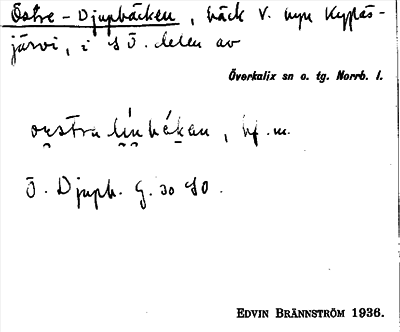 Östre-Djupbäcken, bäck v. myr Kypäs-
järvi, i SÖ. delen av
Överkalix sn o. tg. Norrb. l.
bf. m.
Ö. Djupb. G. 30 SO.
EDVIN BRÄNNSTRÖM 1936.